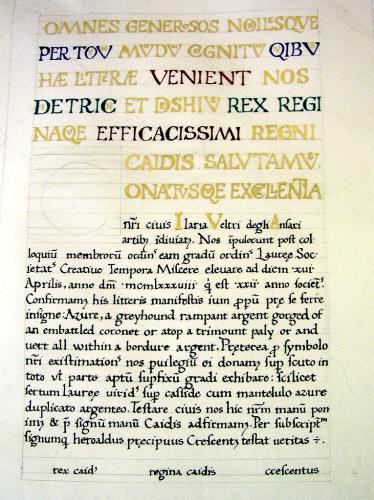 OMNES GENEROSOS NOBILESQVE
PER TOV MVDV COGNITV QIBV
HÆ LITERÆ VENIENT NOS
DETRIC ET DSHIV REX REGI
NAQE EFFICACISSIMI REGNI
CAIDIS SALVTAMV.
ONATVSQE EXCELLENTIA
nr̄i ciuis Ilaria Veltri degli Ansari
artib; idiuiat;. Nos ipulerunt post col
loquiū membrorū ordin; eam gradū ordin; Laureę Soc
ietat; Creatiuo Tempora Miscere eleuare ad diem .xxi.
Aprilis, anno dn̄i .mcmlxxxuiii. q̄ est .xxii. anno societ;.
Confirmam; his litteris manifestis ium p̄p̄ū pre se ferre
insigne: Azure, a greyhound rampant argent gorged of
an embattled coronet or atop a trimount paly or and
uert all within a bordure argent. Pręterea p symbolo
nr̄i existimation; nos puilegiū ei donam; sup scuto in
toto ut parto aptū supfixū gradi exhibare: scilicet
sertum Laureę uirid; sup casside cum mantelulo azure
duplicato argenteo. Testare ciuis nos hic nr̄m manū pon
im; & p̄ signū manū Caidis adfirmam;. Per subscript
signumq heroaldus pręcipuus Crescent; testat ueritas ÷.
rex caid; regina caidis crescentus